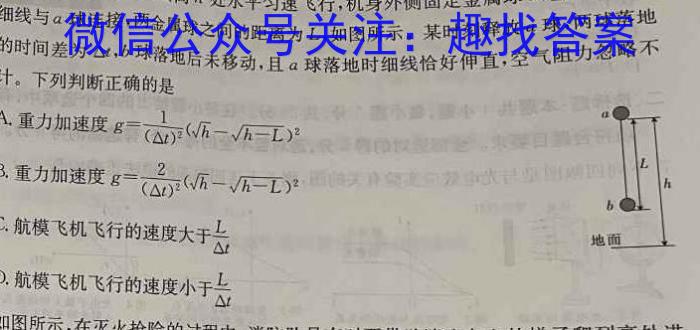 处水平匀速飞行,机身外侧固定金属球
细线与a球连接,两金属球之间的距离为L,如图所示,某时刻释放a球,两球落地
的时间差为 球落地后未移动,且a球落地时细线恰好伸直,空气阻力忽略不
计。下列判断正确的是
微信公众号关注:趣找答案
A. 重力加速度 g=1/(Δt)²(√h-√h-L)²
B. 重力加速度 g=2/(Δt)²(√h-√h-L)²
C. 航模飞机飞行的速度大于L/Δt
D. 航模飞机飞行的速度小于L/Δt
a
L
h
b
地面
如图所示,在灭火抢险的过程中,消防队员